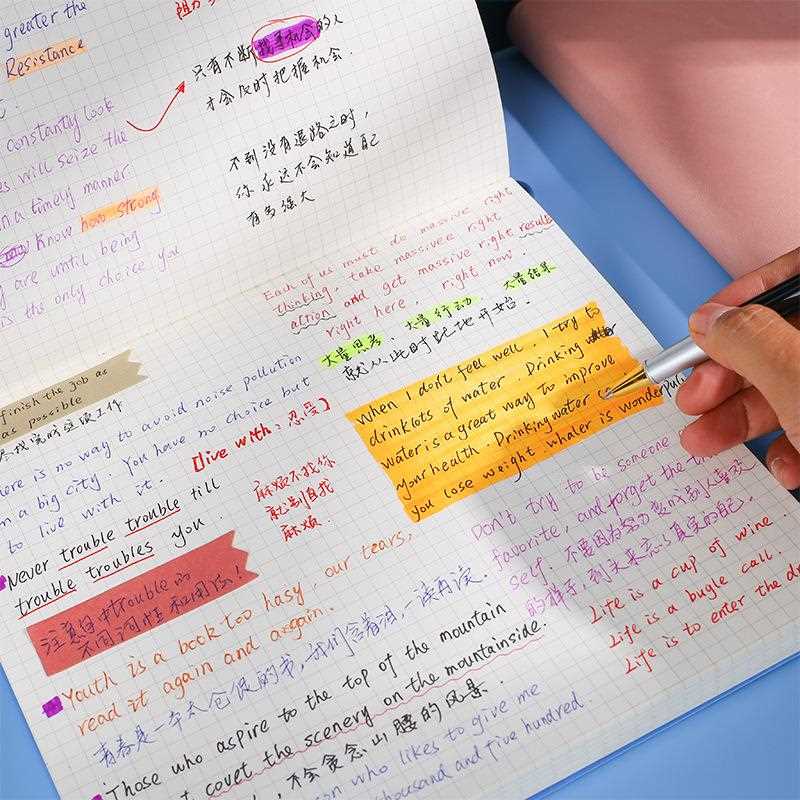 greater the
Resistance
阻力
constantly look
es will seize the
in a timely manner.
know how strong
are until being
is the only choice you
只有不断找寻机会的人
才会及时把握机会.
不到没有退路之时,
你永远不会知道自己
有多强大
Each of us must do massive right
thinking, take massivee right
action and get massive right result
right here, right now.
大量思考、大量行动、大量结果
就从此时此地开始.
finish the job as
as possible
here is no way to avoid noise pollution
in a big city. You have no choice but
to live with it. [live with: 忍受]
Never trouble trouble till
trouble troubles you.
麻烦不找你
就别自找
麻烦.
注意句中trouble的
不同词性和用法!
when I don't feel well. I try to
drinklots of water. Drinking water
wateris a great way to improve
your health. Drinkingwater ca
you lose weight. whaler is wonderful
Don't try to be someone
favorite, and forget the
self. 不要因为努力变成别人喜欢
的样子,到头来忘了真实的自己.
Life is a cup of wine.
Life is a bugle call.
Life is to enter the
Youth is a book too hasy, our tears,
read it again and axgain.
青春是一本太仓促的书,我们含着泪,一读再读.
Those who aspire to the top of the mountain
covet the scenery on the mountainside.
不会贪念山腰的风景.
son who likes to give me
thousand and five hundred.